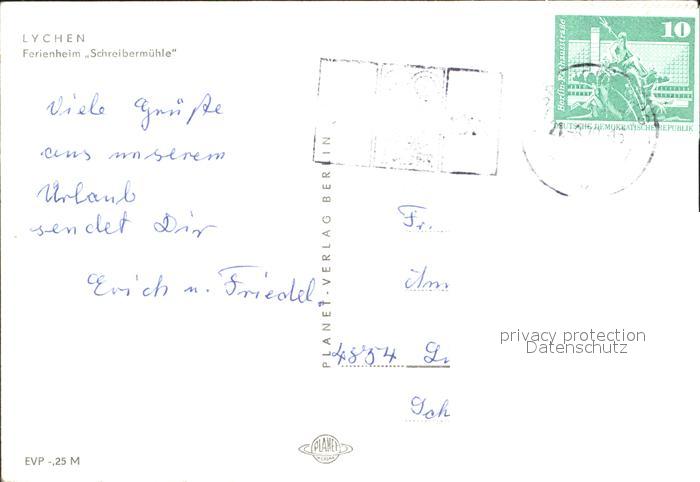 LYCHEN
Ferienheim „Schreibermühle"
Viele Grüße
aus unserem
Urlaub
sendet Dir
Erich u. Friedel.
PLANET-VERLAG BERLIN
Berlin-Rathausstraße
10
DEUTSCHE DEMOKRATISCHE REPUBLIK
Fr.
4854
Sch
privacy protection
Datenschutz
PLANET
EVP -,25 M